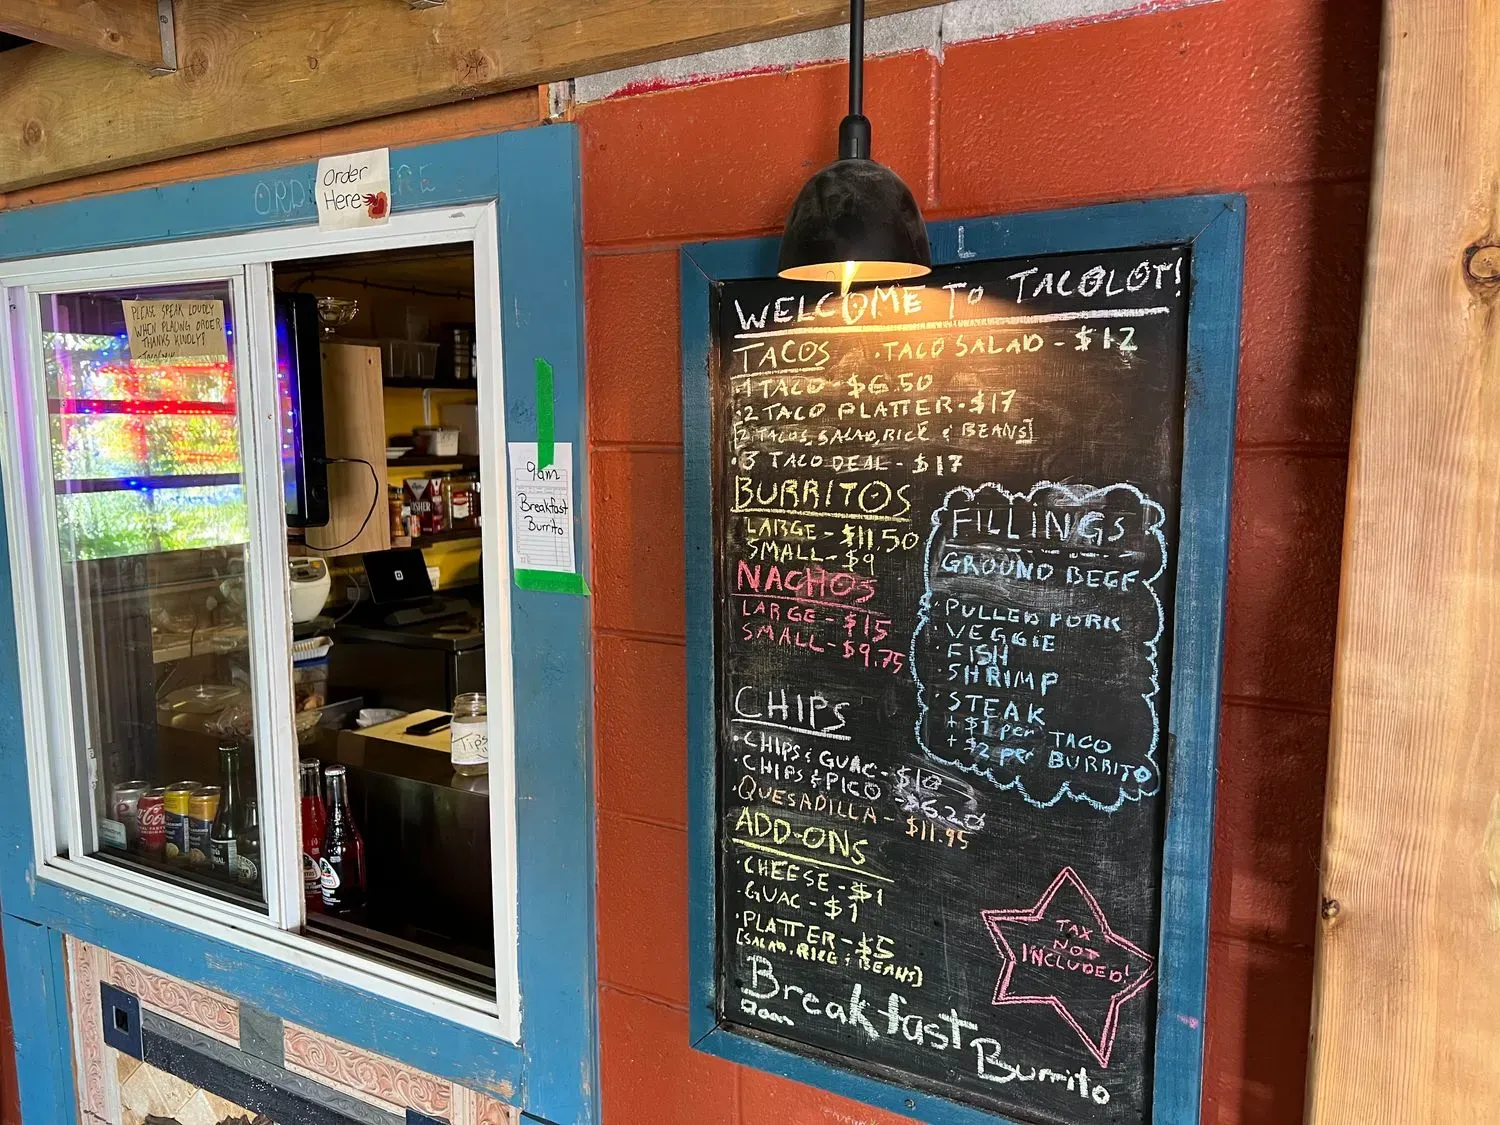 ORDER HERE
Order
Here
PLEASE SPEAK LOUDLY
WHEN PLACING ORDER,
THANKS KINDLY!
9am
Breakfast
Burrito
Tips
Coca-Cola
WELCOME TO TACOLOT!
TACOS
• TACO SALAD - $12
• 1 TACO - $6.50
• 2 TACO PLATTER - $17
[2 TACOS, SALAD, RICE & BEANS]
• 3 TACO DEAL - $17
BURRITOS
LARGE - $11.50
SMALL - $9
NACHOS
LARGE - $15
SMALL - $9.75
FILLINGS
GROUND BEEF
• PULLED PORK
• VEGGIE
• FISH
• SHRIMP
• STEAK
+ $1 per TACO
+ $2 per BURRITO
CHIPS
• CHIPS & GUAC - $10
• CHIPS & PICO - $6.20
• QUESADILLA - $11.95
ADD-ONS
• CHEESE - $1
• GUAC - $1
• PLATTER - $5
[SALAD, RICE & BEANS]
TAX
NOT
INCLUDED!
Breakfast
9am
Burrito